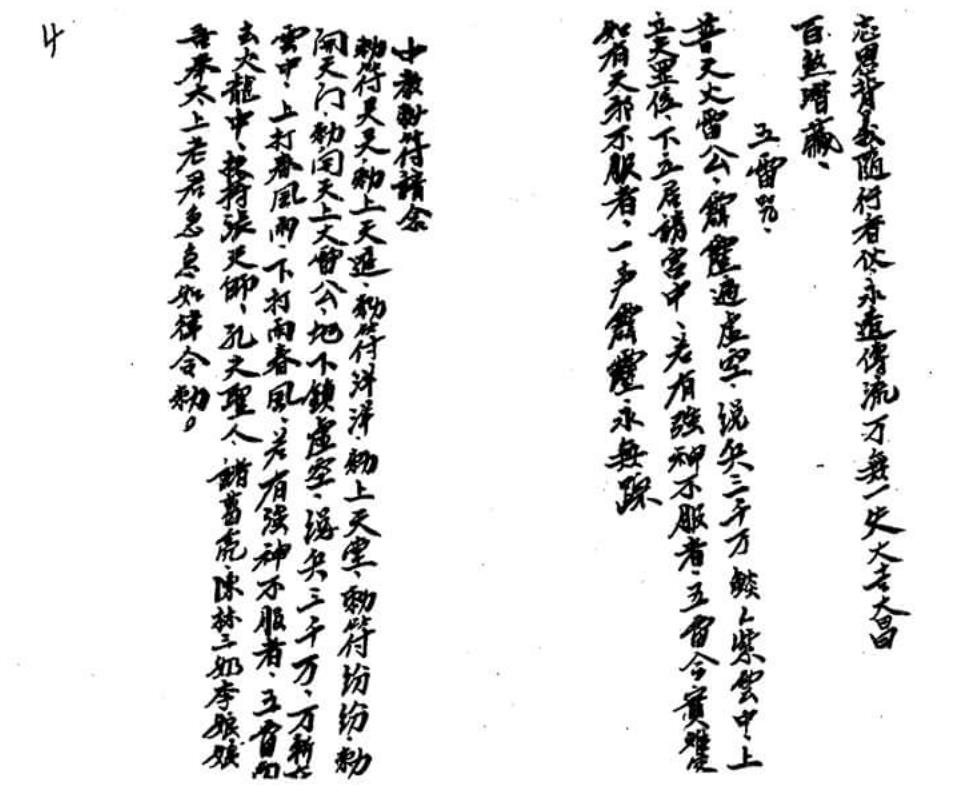 忘恩背義随行者仗、永遠傳流万無一失大吉大昌
百煞潛藏、
五雷咒、
普天大雷公、霹靂遍虛空、統兵三千万 燄々紫雲中、上
立天罡位、下立居諸宮中、若有強神不服者、五雷令實難
如有天邪不服者、一声霹靂永無踪
中教勅符請念
勅符灵灵、勅上天廷、勅符洋洋、勅上天堂、勅符纷纷、勅
開天门、勅開天上大雷公、地下鎖虛空、統兵三千万、万
雲中、上打春風雨、下打雨春風、若有強神不服者、五雷
去火龍中、扶持張天師、孔夫聖人、諸葛亮、陳林三奶李娘娘
吾奉太上老君急急如律令勅。
4